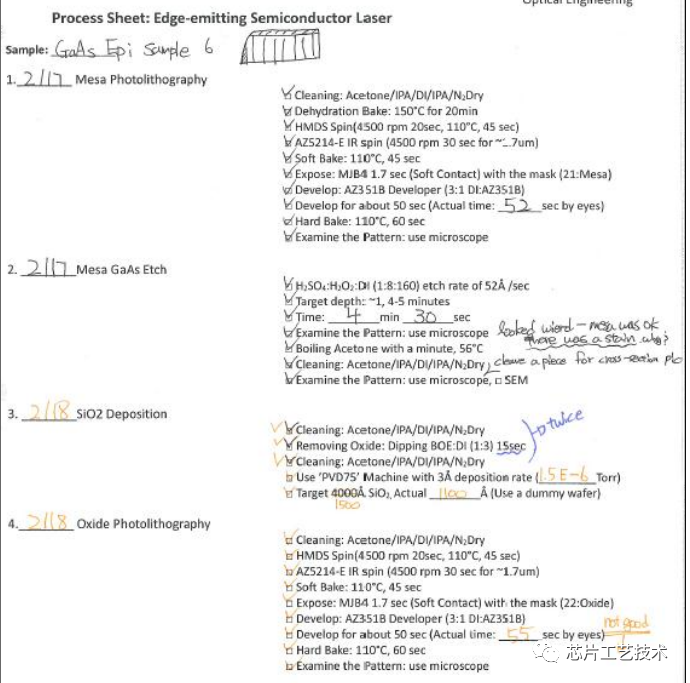 Optical Engineering
Process Sheet: Edge-emitting Semiconductor Laser
Sample: GaAs Epi Sample 6
1. 2/17 Mesa Photolithography
Cleaning: Acetone/IPA/DI/IPA/N₂Dry
Dehydration Bake: 150°C for 20min
HMDS Spin(4500 rpm 20sec, 110°C, 45 sec)
AZ5214-E IR spin (4500 rpm 30 sec for ~1.7um)
Soft Bake: 110°C, 45 sec
Expose: MJB4 1.7 sec (Soft Contact) with the mask (21:Mesa)
Develop: AZ351B Developer (3:1 DI:AZ351B)
Develop for about 50 sec (Actual time: 52 sec by eyes)
Hard Bake: 110°C, 60 sec
Examine the Pattern: use microscope
2. 2/17 Mesa GaAs Etch
H₂SO₄:H₂O₂:DI (1:8:160) etch rate of 52Å /sec
Target depth: ~1, 4-5 minutes
Time: 4 min 30 sec
Examine the Pattern: use microscope looked wierd - mesa was ok
there was a stain. why?
Boiling Acetone with a minute, 56°C
Cleaning: Acetone/IPA/DI/IPA/N₂Dry, cleave a piece for cross-section pic
Examine the Pattern: use microscope, □ SEM
3. 2/18 SiO2 Deposition
Cleaning: Acetone/IPA/DI/IPA/N₂Dry
Removing Oxide: Dipping BOE:DI (1:3) 15sec twice
Cleaning: Acetone/IPA/DI/IPA/N₂Dry
Use 'PVD75' Machine with 3Å deposition rate (1.5E-6 Torr)
Target 4000Å SiO₂, Actual 1100 Å (Use a dummy wafer)
1500
4. 2/18 Oxide Photolithography
Cleaning: Acetone/IPA/DI/IPA/N₂Dry
HMDS Spin(4500 rpm 20sec, 110°C, 45 sec)
AZ5214-E IR spin (4500 rpm 30 sec for ~1.7um)
Soft Bake: 110°C, 45 sec
Expose: MJB4 1.7 sec (Soft Contact) with the mask (22:Oxide)
Develop: AZ351B Developer (3:1 DI:AZ351B)
not good
Develop for about 50 sec (Actual time: 55 sec by eyes)
Hard Bake: 110°C, 60 sec
Examine the Pattern: use microscope
芯片工艺技术